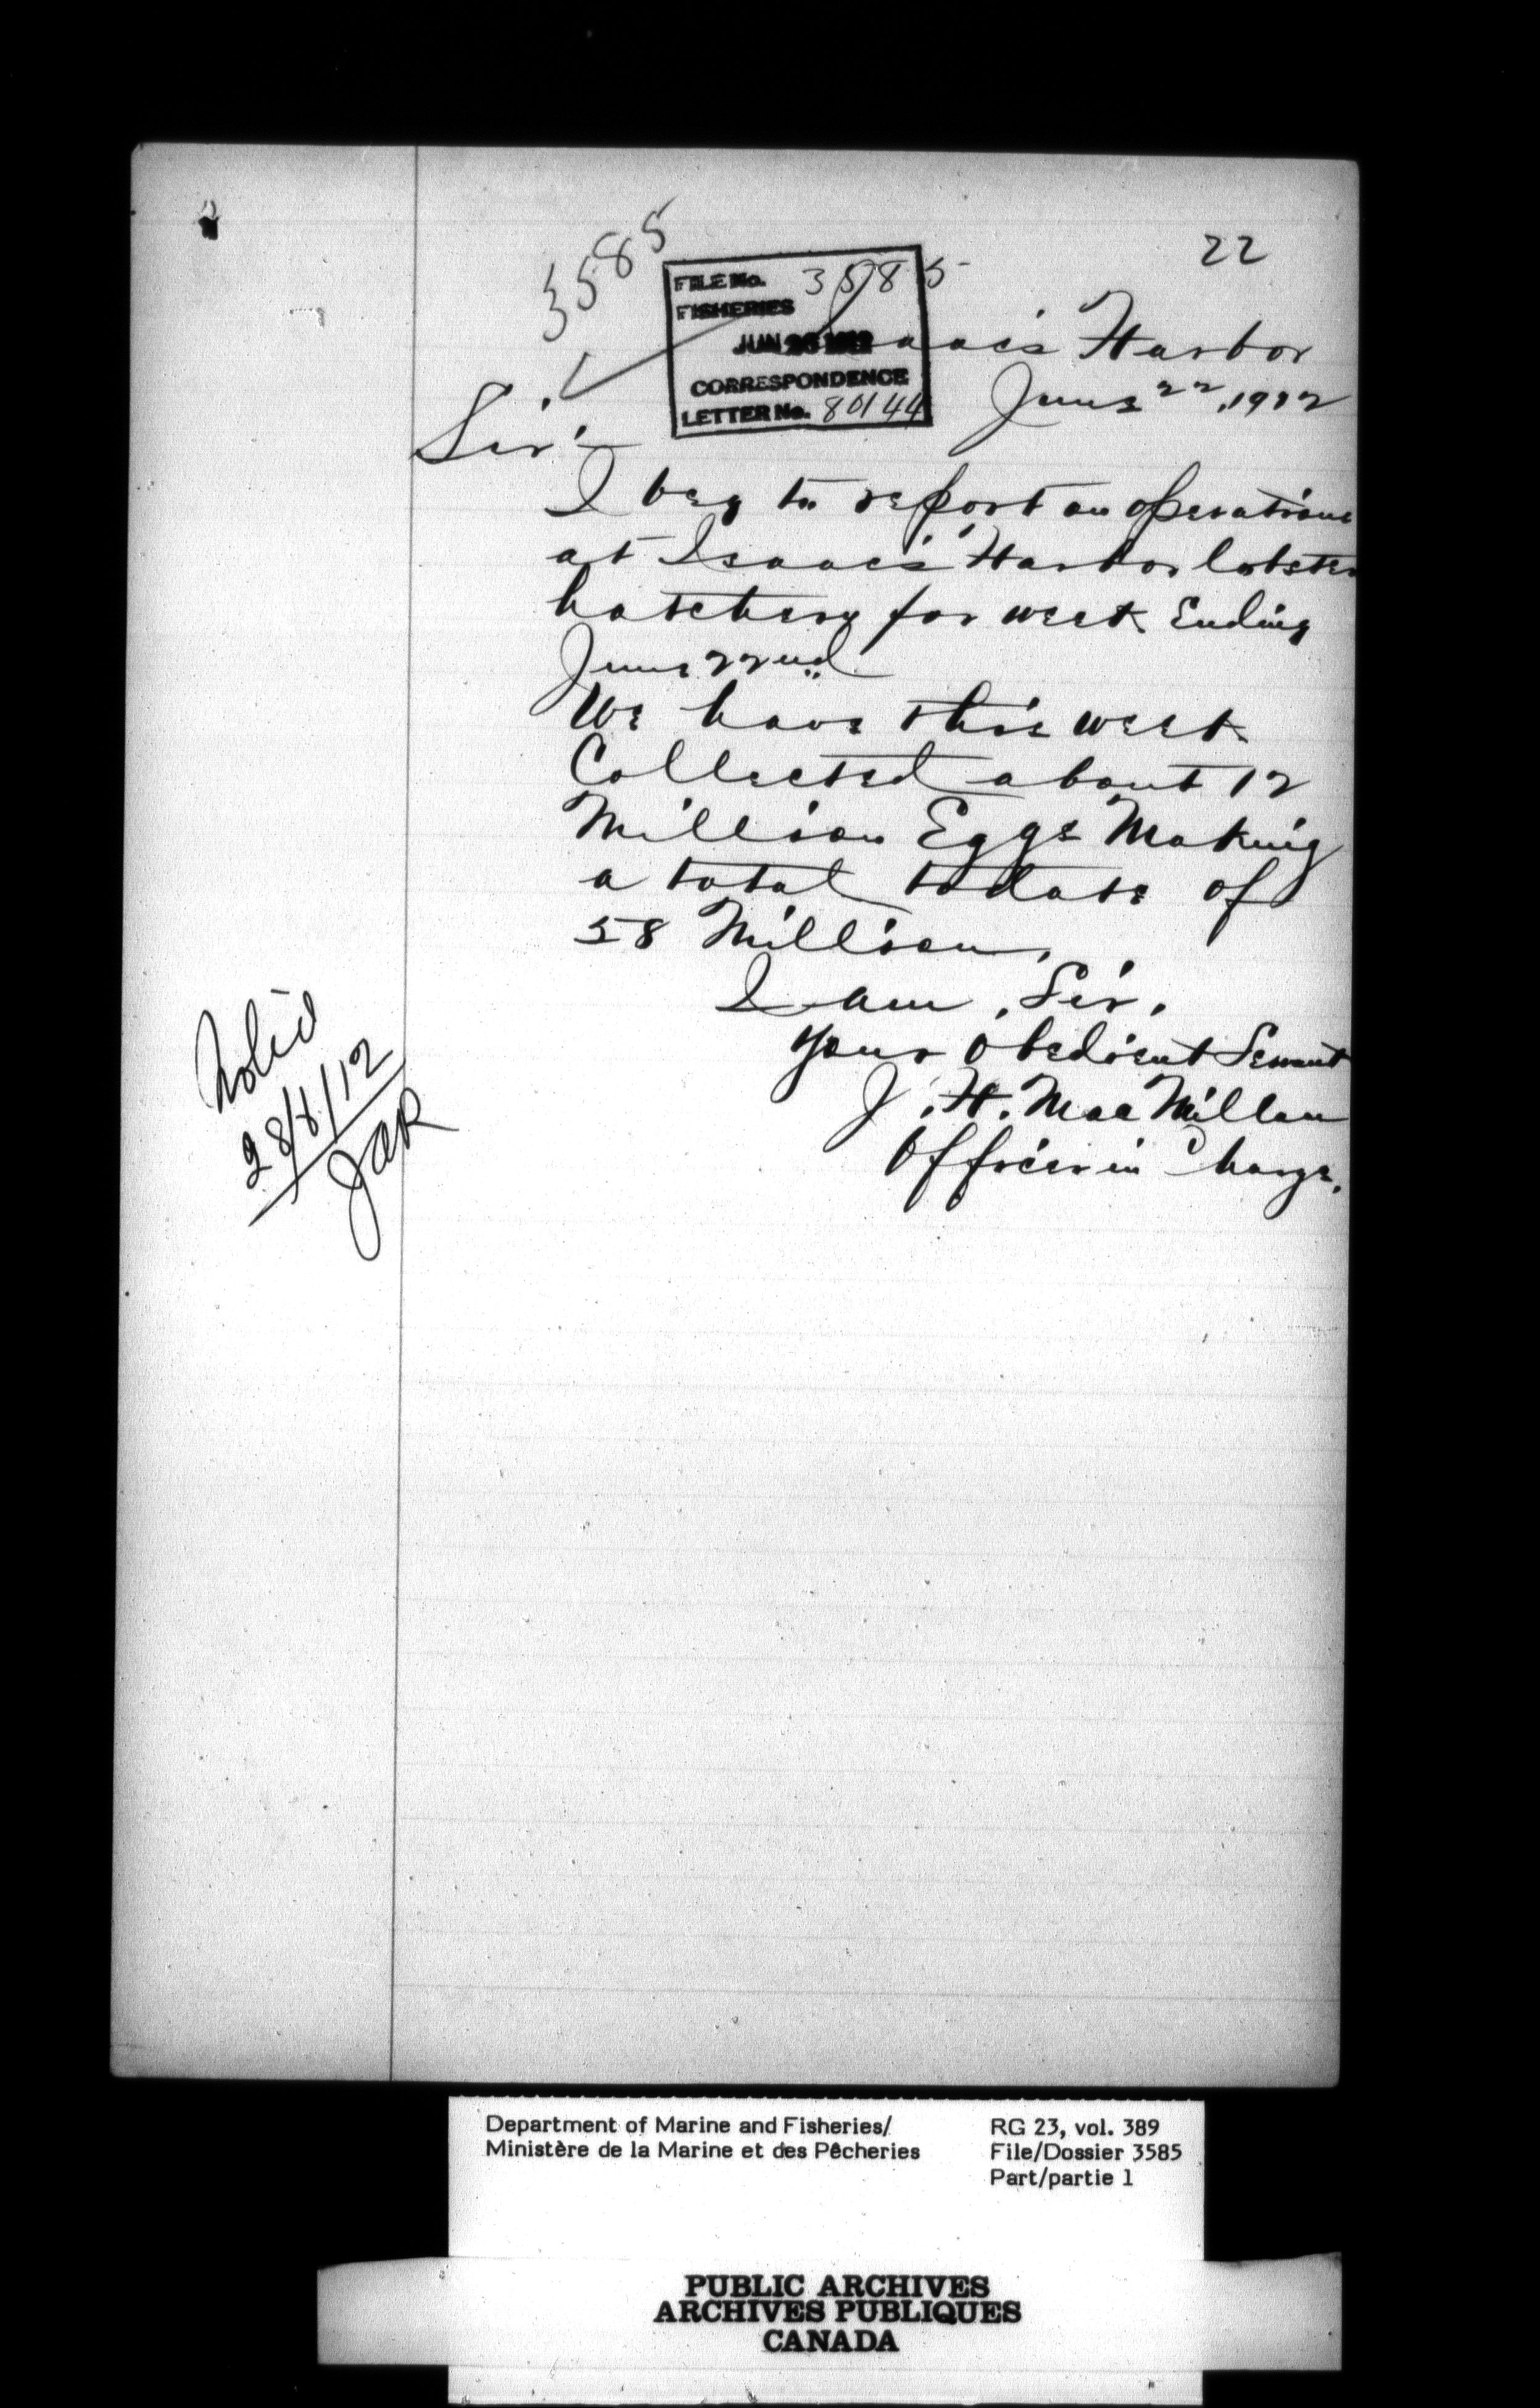 22
3585
FILE No. 3585
FISHERIES
JUN 26 1912
CORRESPONDENCE
LETTER No. 80144
Isaac's Harbor
June 22, 1912
Sir:
I beg to report on operations
at Isaac's Harbor lobster
hatchery for week Ending
June 22nd
We have this week
Collected about 12
Million Eggs Making
a total todate of
58 Million.
I am, Sir,
your Obedient Servant
J. H. MacMillan
Officer in Charge.
Noted
JAR
Department of Marine and Fisheries/
Ministère de la Marine et des Pêcheries
RG 23, vol. 389
File/Dossier 3585
Part/partie 1
PUBLIC ARCHIVES
ARCHIVES PUBLIQUES
CANADA